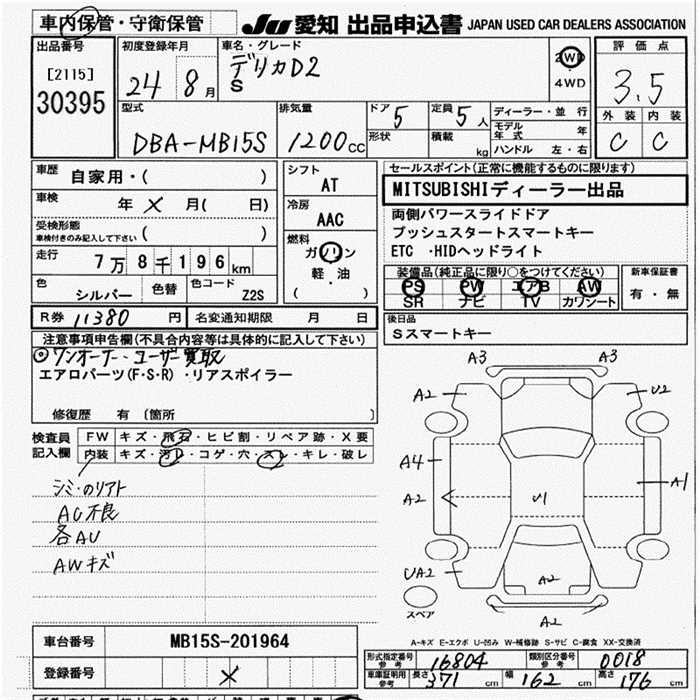 車内保管・守衛保管
JU 愛知 出品申込書 JAPAN USED CAR DEALERS ASSOCIATION
出品番号
[2115]
30395
初度登録年月
24 8月
車名・グレード
デリカD2
S
2WD
・
4WD
評価点
3.5
外装 内装
C C
型式
DBA-MB15S
排気量
1200cc
ドア 5
形状
定員 5人
積載 kg
ディーラー・並行
モデル年式 年
ハンドル 左・右
車歴
自家用・( )
車検
年 × 月( 日)
受検形態
車検付きのみ記入して下さい ( )
走行
7万8千196km
色
シルバー
色替
色コード
Z2S
シフト
AT
冷房
AAC
燃料
ガソリン
軽・油
( )
セールスポイント(正常に機能するものに限ります)
MITSUBISHIディーラー出品
両側パワースライドドア
プッシュスタートスマートキー
ETC ・HIDヘッドライト
装備品(純正品に限り○をつけてください)
PS PW エアB AW
SR ナビ TV カワシート
新車保証書
有・無
R券 11380円
名変通知期限 月 日
後日品
Sスマートキー
注意事項申告欄(不具合内容等は具体的に記入して下さい)
◎ワンオーナー・ユーザー買取
エアロパーツ(F・S・R)・リアスポイラー
修復歴 有〔箇所 〕
検査員
記入欄
FW キズ・飛石・ヒビ割・リペア跡・X要
内装 キズ・汚レ・コゲ・穴・スレ・キレ・破レ
シミ・のリアト
AC不良
各AU
AWキズ
A3 A3
A2 U2
A4
A1
A2
U1
UA2
A2
スペア
A2
A-キズ E-エクボ U-凹み W-補修跡 S-サビ C-腐食 XX-交換済
車台番号
MB15S-201964
登録番号
×
形式指定番号
参考
16804
類別区分番号
参考
0018
車庫証明用
参考
長さ 371cm
幅 162cm
高さ 176cm